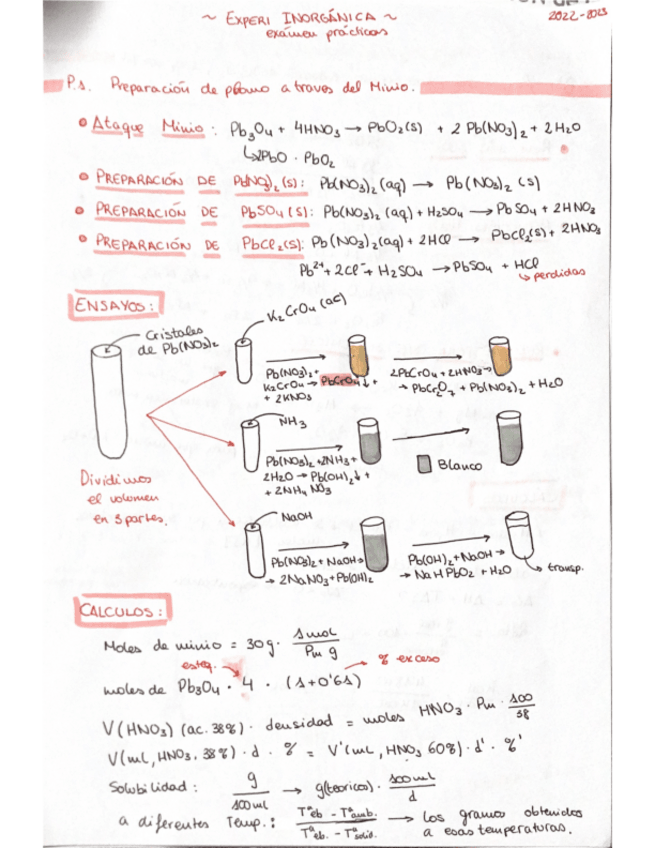 ~ EXPERI INORGÁNICA ~
exámen prácticos
2022-2023
P.1. Preparación de plomo a traves del Minio.
• Ataque Minio: Pb3O4 + 4HNO3 → PbO2(s) + 2 Pb(NO3)2 + 2 H2O
↳ 2PbO · PbO2
• PREPARACIÓN DE Pb(NO3)2 (s): Pb(NO3)2 (aq) → Pb(NO3)2 (s)
• PREPARACIÓN DE PbSO4 (s): Pb(NO3)2 (aq) + H2SO4 → PbSO4 + 2HNO3
• PREPARACIÓN DE PbCl2(s): Pb(NO3)2(aq) + 2HCl → PbCl2(s) + 2HNO3
Pb2+ + 2Cl- + H2SO4 → PbSO4 + HCl
↳ perdidas
ENSAYOS:
Cristales
de Pb(NO3)2
K2CrO4 (ac)
Pb(NO3)2 +
K2CrO4 → PbCrO4↓ +
+ 2KNO3
2PbCrO4 + 2HNO3 →
→ PbCr2O7 + Pb(NO3)2 + H2O
NH3
Pb(NO3)2 + 2NH3 +
2H2O → Pb(OH)2↓ +
+ 2NH4 NO3
Blanco
Dividimos
el volumen
en 3 partes.
NaOH
Pb(NO3)2 + NaOH →
→ 2NaNO3 + Pb(OH)2
Pb(OH)2 + NaOH →
→ NaHPbO2 + H2O
transp.
CALCULOS:
Moles de minio = 30g · 1mol / Pm g
esteq.
% exceso
moles de Pb3O4 · 4 · (1+0'61)
V(HNO3) (ac. 38%) · densidad = moles HNO3 · Pm · 100/38
V(mL, HNO3, 38%) · d · % = V'(mL, HNO3 60%) · d' · %'
Solubilidad: g/100ml → g(teorico) · 100ml/d
a diferentes Temp.: Tªeb - Tªamb. / Tªeb. - Tªsolid. → los gramos obtenidos
a esas temperaturas.